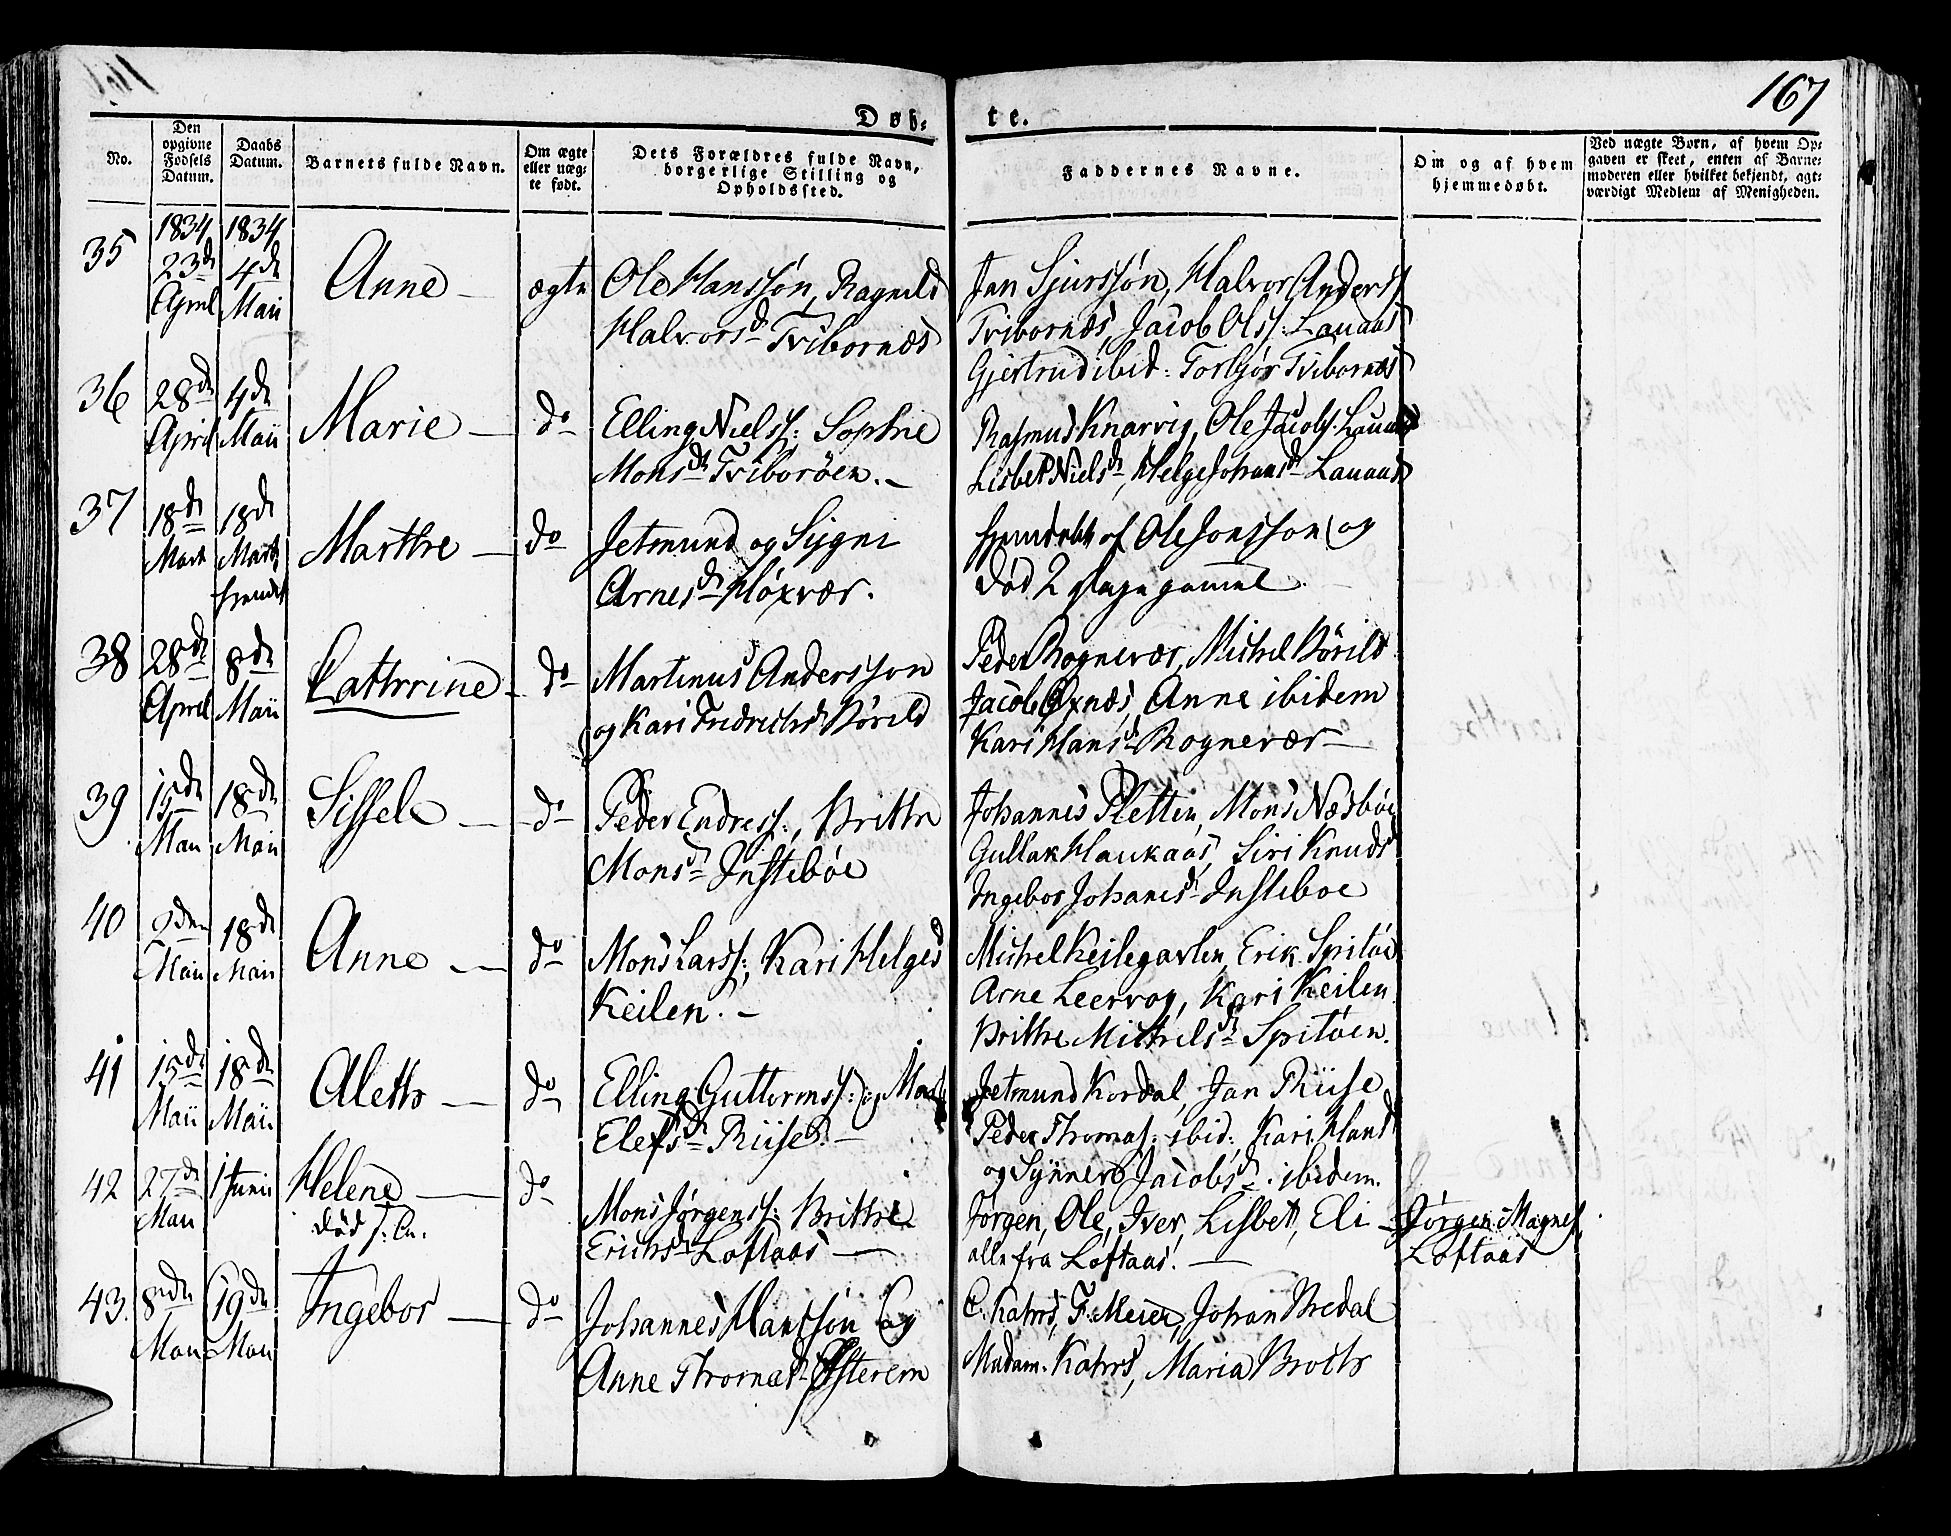 167
Døb-
te.
No.
Den opgivne Fødsels Datum.
Daabs Datum.
Barnets fulde Navn.
Om ægte eller uægte født.
Dets Forældres fulde Navn, borgerlige Stilling og Opholdssted.
Faddernes Navne.
Om og af hvem hjemmedøbt.
Ved uægte Børn, af hvem Opgaven er skeet, enten af Barnemoderen eller hvilket bekjendt, agtværdigt Medlem af Menigheden.
35
1834 23de April
1834 4de Maii
Anne
ægte
Ole Hanssøn, Ragnild
Halvorsd Tvibornæs
Jan Sjurssøn, Halvor Anderss
Tvibornæs, Jacob Olss: Lauaas
Gjertrud ibid: Torbjør Tvibornæs
36
28de April
4de Maii
Marie
do
Elling Nielss: Sophie
Monsdr Tviborøen.
Rasmus Knarvig, Ole Jacobs. Lauaas
Lisbet Nielsdr, Helge Johansdr Lauaas
37
18de Marts
18de Marts hjemdøbt
Marthe
do
Jetmund og Sygni
Arnesdr Høxvær.
hjemdøbt af Ole Jonsson og
død 2 Dage gammel
38
28de April
8de Maii
Cathrine
do
Martinus Andersson
og Kari Fridrichsd Børild
Peder Rognevær, Michel Børild
Jacob Øxnæs, Anne ibidem
Kari Hansd Rogneværr
39
15de Maii
18de Maii
Sissele
do
Peder Endress:, Brithe
Monsdr Instebøe
Johannes Pletten, Mons Næsbøe
Gullak Haukaas, Siri Knudsd
Ingebor Johanesd Insteboe
40
9den Maii
18de Maii
Anne
do
Mons Larss:, Kari Helgesd
Keilen.
Michel Keilegavlen, Erik Spritøe
Arne Leervog, Kari Keilen
Brithe Michelsdr Spritøen.
41
15de Maii
18de Maii
Alethe
do
Elling Guttormss: og
Elefsdr Riise
Jetmund Kordal, Jan Riise
Peder Thomas: ibid: Kari Hansd
og Synneve Jacobsdr. ibidem.
42
27de Maii
1 Junii
Helene
død
do
Mons Jørgenss: Brithe
Erichsdr Løftaas
Jørgen, Ole, Iver, Lisbet, Eli
alle fra Løftaas.
Jørgen Magnes.
Løftaas
43.
8de Maii
19de Maii
Ingebor
do
Johannes Hanssøn og
Anne Thomasd Østerem
C. Kahrs, F. Meier, Johan Bredal
Madam. Kahrs, Maria Broch